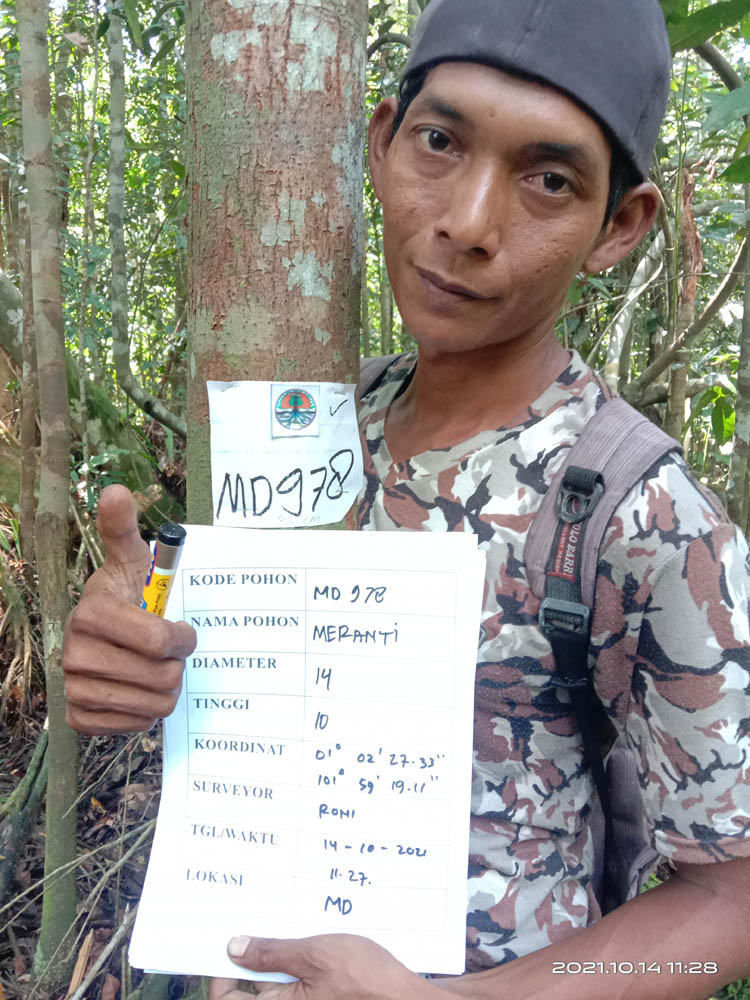 MD978
KODE POHON MD 978
NAMA POHON MERANTI
DIAMETER 14
TINGGI 10
KOORDINAT 01° 02' 27.33"
101° 59' 19.11"
SURVEYOR RONI
TGL/WAKTU 14-10-2021
11.27.
LOKASI MD
POLO BARRI
2021.10.14 11:28